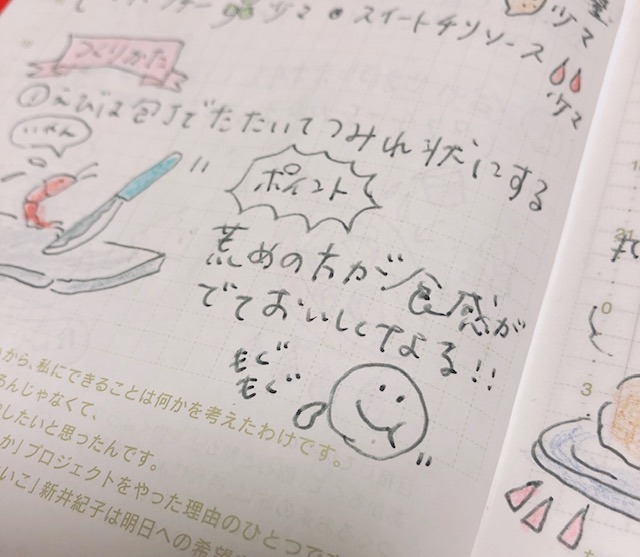 ツマ
スイートチリソース
ツマ
つくりかた
①えびは包丁でたたいてつみれ状にする
いやん
ポイント
荒めの方が食感が
でておいしくなる!!
もぐ
もぐ
から、私にできることは何かを考えたわけです。
んじゃなくて、
したいと思ったんです。
か」プロジェクトをやった理由のひとつです
いこ」新井紀子は明日への希望
0
3